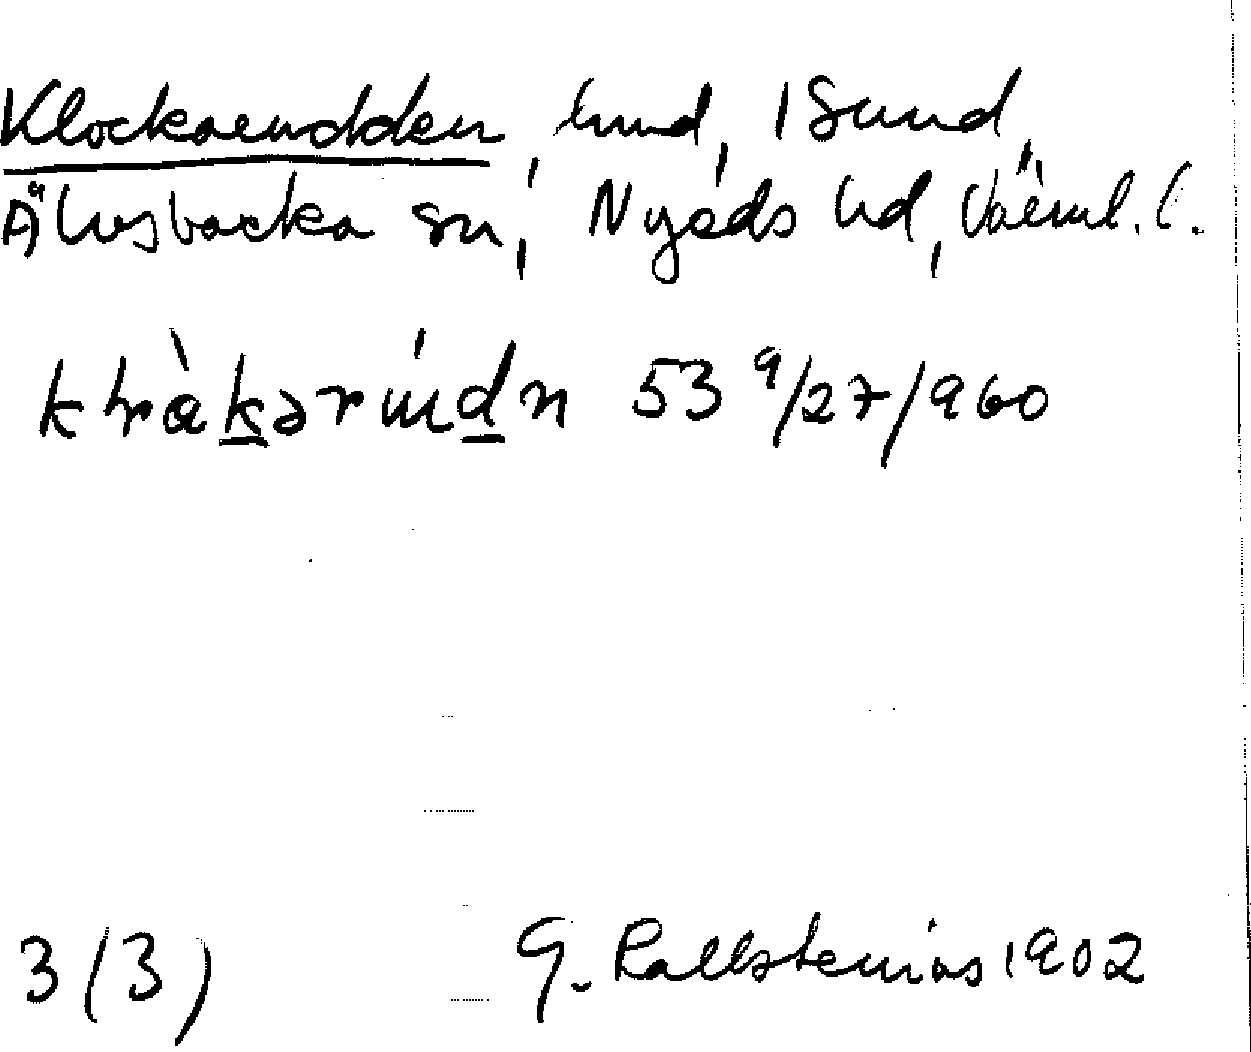 Klockarudden, lund, 1 Sund,
Älvsbacka sn, Nyeds hd, Värml. l.
53 9/27/960
3 (3) G. Kallstenius 1902